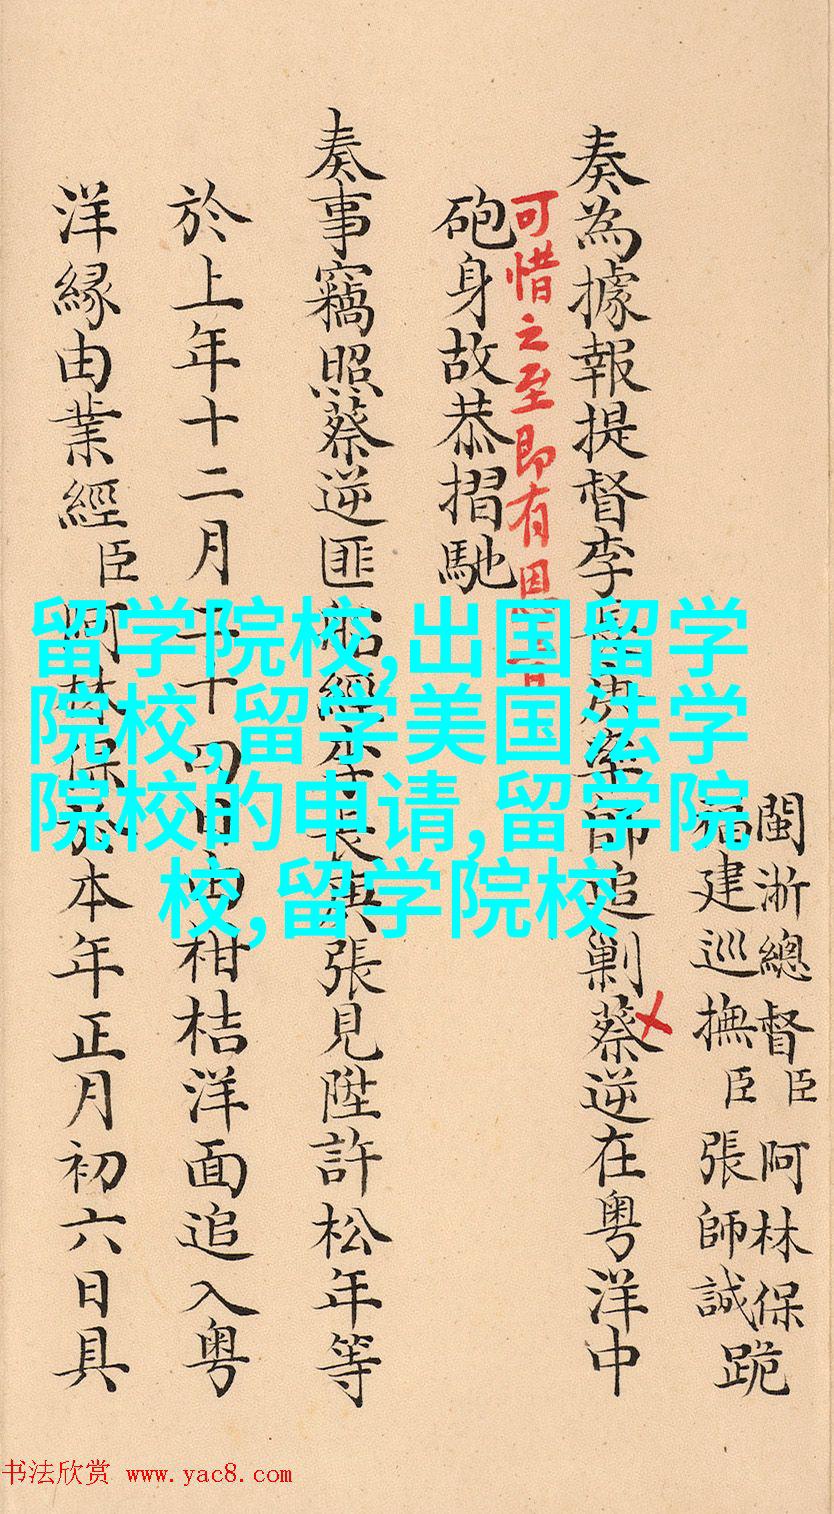 閩浙總督臣阿林保
福建巡撫臣張師誠跪
奏為據報提督李師追剿蔡逆在粤洋中
可惜之至即有恩旨
砲身故恭摺馳
奏事竊照蔡逆匪船經李長庚張見陞許松年等
於上年十二月二十四日由柑桔洋面追入粤
洋緣由業經臣阿林保於本年正月初六日具
留学院校,出国留学
院校,留学美国法学
院校的申请,留学院
校,留学院校
书法欣赏 www.yac8.com